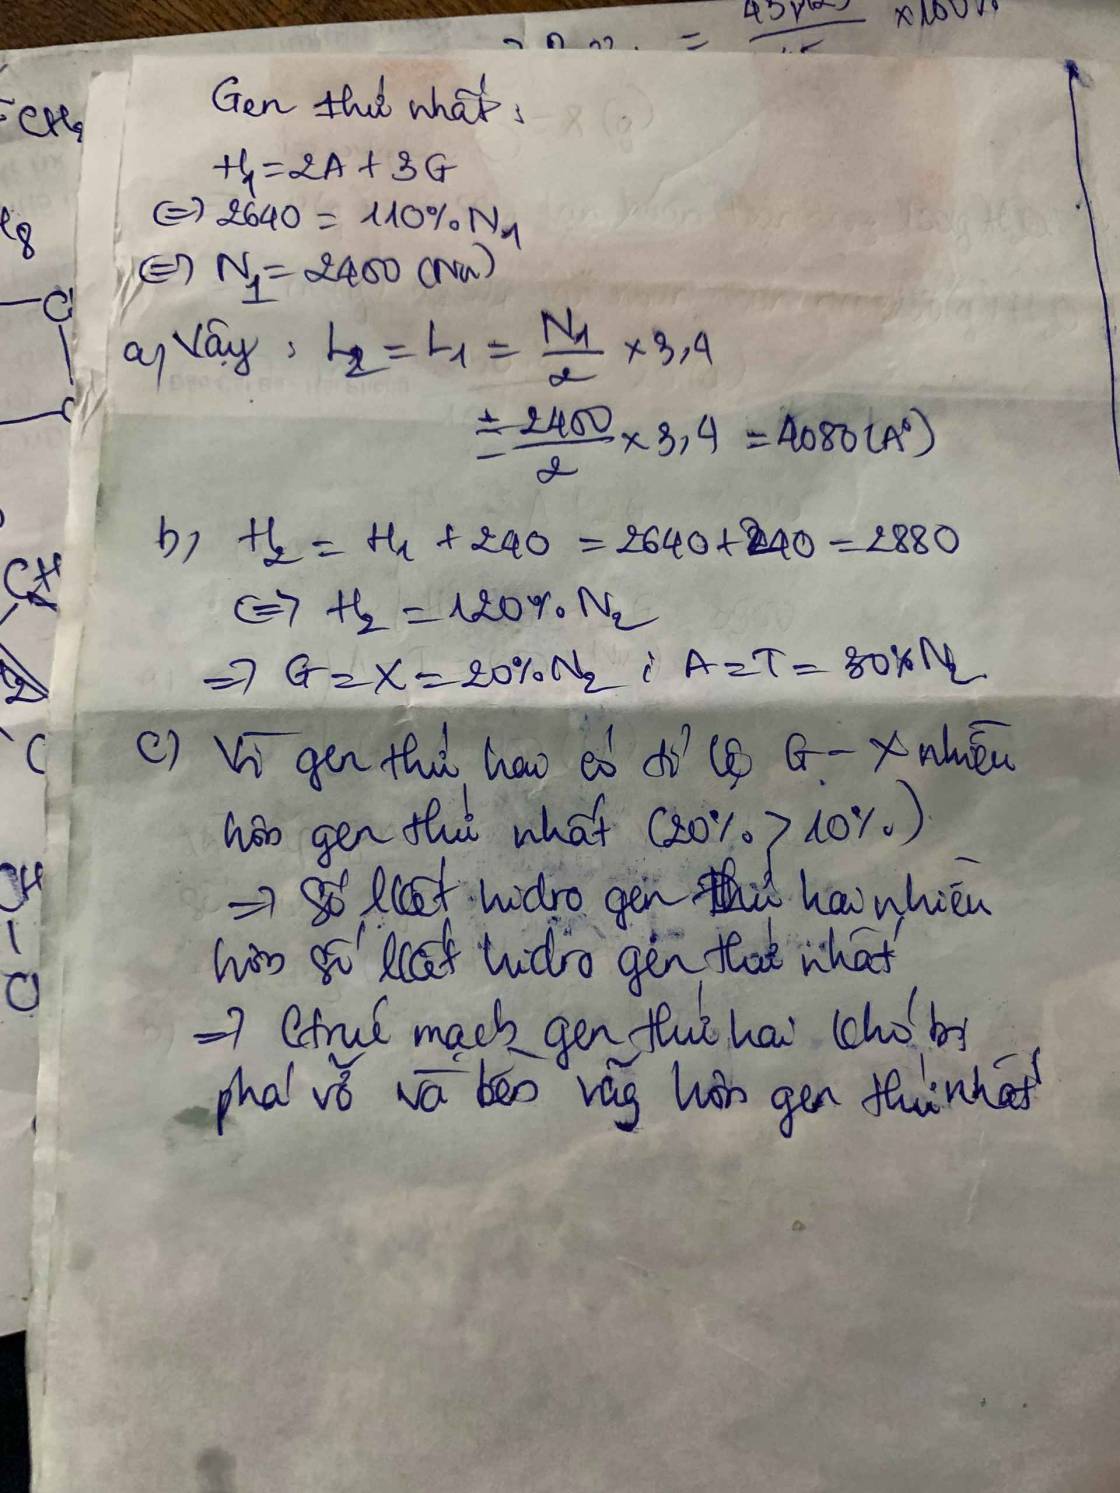 43
x100%
=
CH
Gen thứ nhất :
H₁ = 2A + 3G
<=> 2640 = 110% N₁
<=> N₁ = 2400 (Nu)
a, Vậy : L₂ = L₁ = N₁/2 × 3,4
= 2400/2 × 3,4 = 4080 (A°)
b, H₂ = H₁ + 240 = 2640 + 240 = 2880
<=> H₂ = 120% N₂
=> G = X = 20% N₂ ; A = T = 30% N₂
c) Vì gen thứ hai có tỉ lệ G - X nhiều
hơn gen thứ nhất (20% > 10%)
=> Số lkết hidro gen thứ hai nhiều
hơn số lkết hidro gen thứ nhất
=> Ctrúc mạch gen thứ hai khó bị
phá vỡ và bền vững hơn gen thứ nhất
8
C
CH
C
CH
C